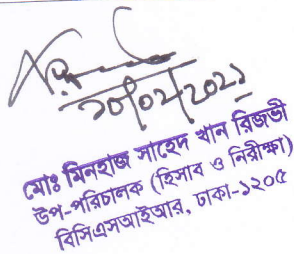 ১০/০২/২০২১
মোঃ মিনহাজ সাহেদ খান রিজভী
উপ-পরিচালক (হিসাব ও নিরীক্ষা)
বিসিএসআইআর, ঢাকা-১২০৫